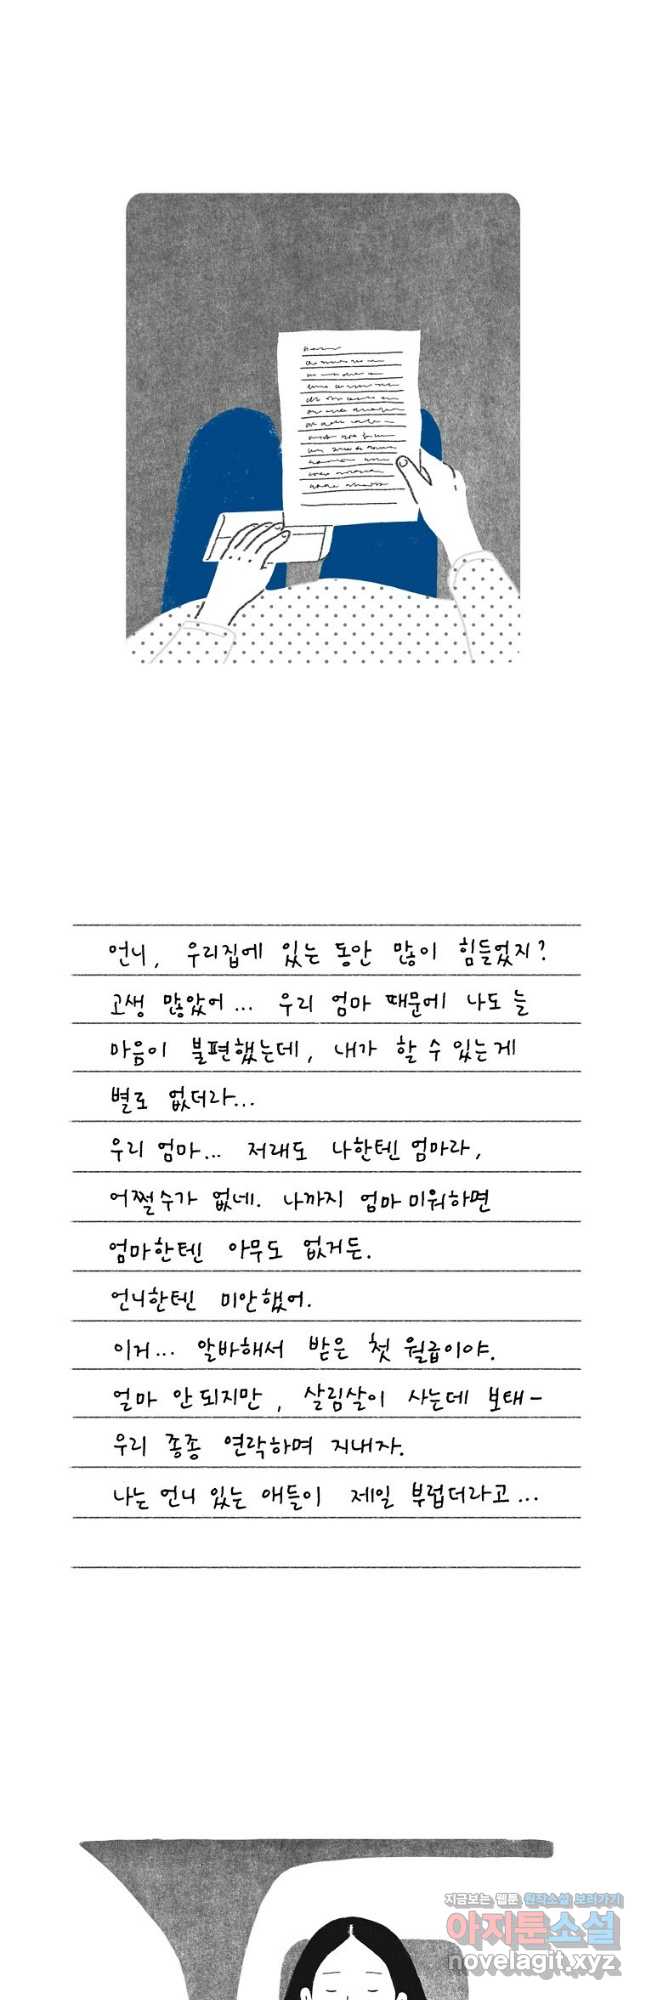 언니, 우리집에 있는 동안 많이 힘들었지?
고생 많았어... 우리 엄마 때문에 나도 늘
마음이 불편했는데, 내가 할 수 있는게
별로 없더라...
우리 엄마... 저래도 나한텐 엄마라,
어쩔수가 없네. 나까지 엄마 미워하면
엄마한텐 아무도 없거든.
언니한텐 미안했어.
이거... 알바해서 받은 첫 월급이야.
얼마 안 되지만, 살림살이 사는데 보태-
우리 종종 연락하며 지내자.
나는 언니 있는 애들이 제일 부럽더라고...
지금보는 웹툰 원작소설 보러가기
아지툰소설
novelagit.xyz